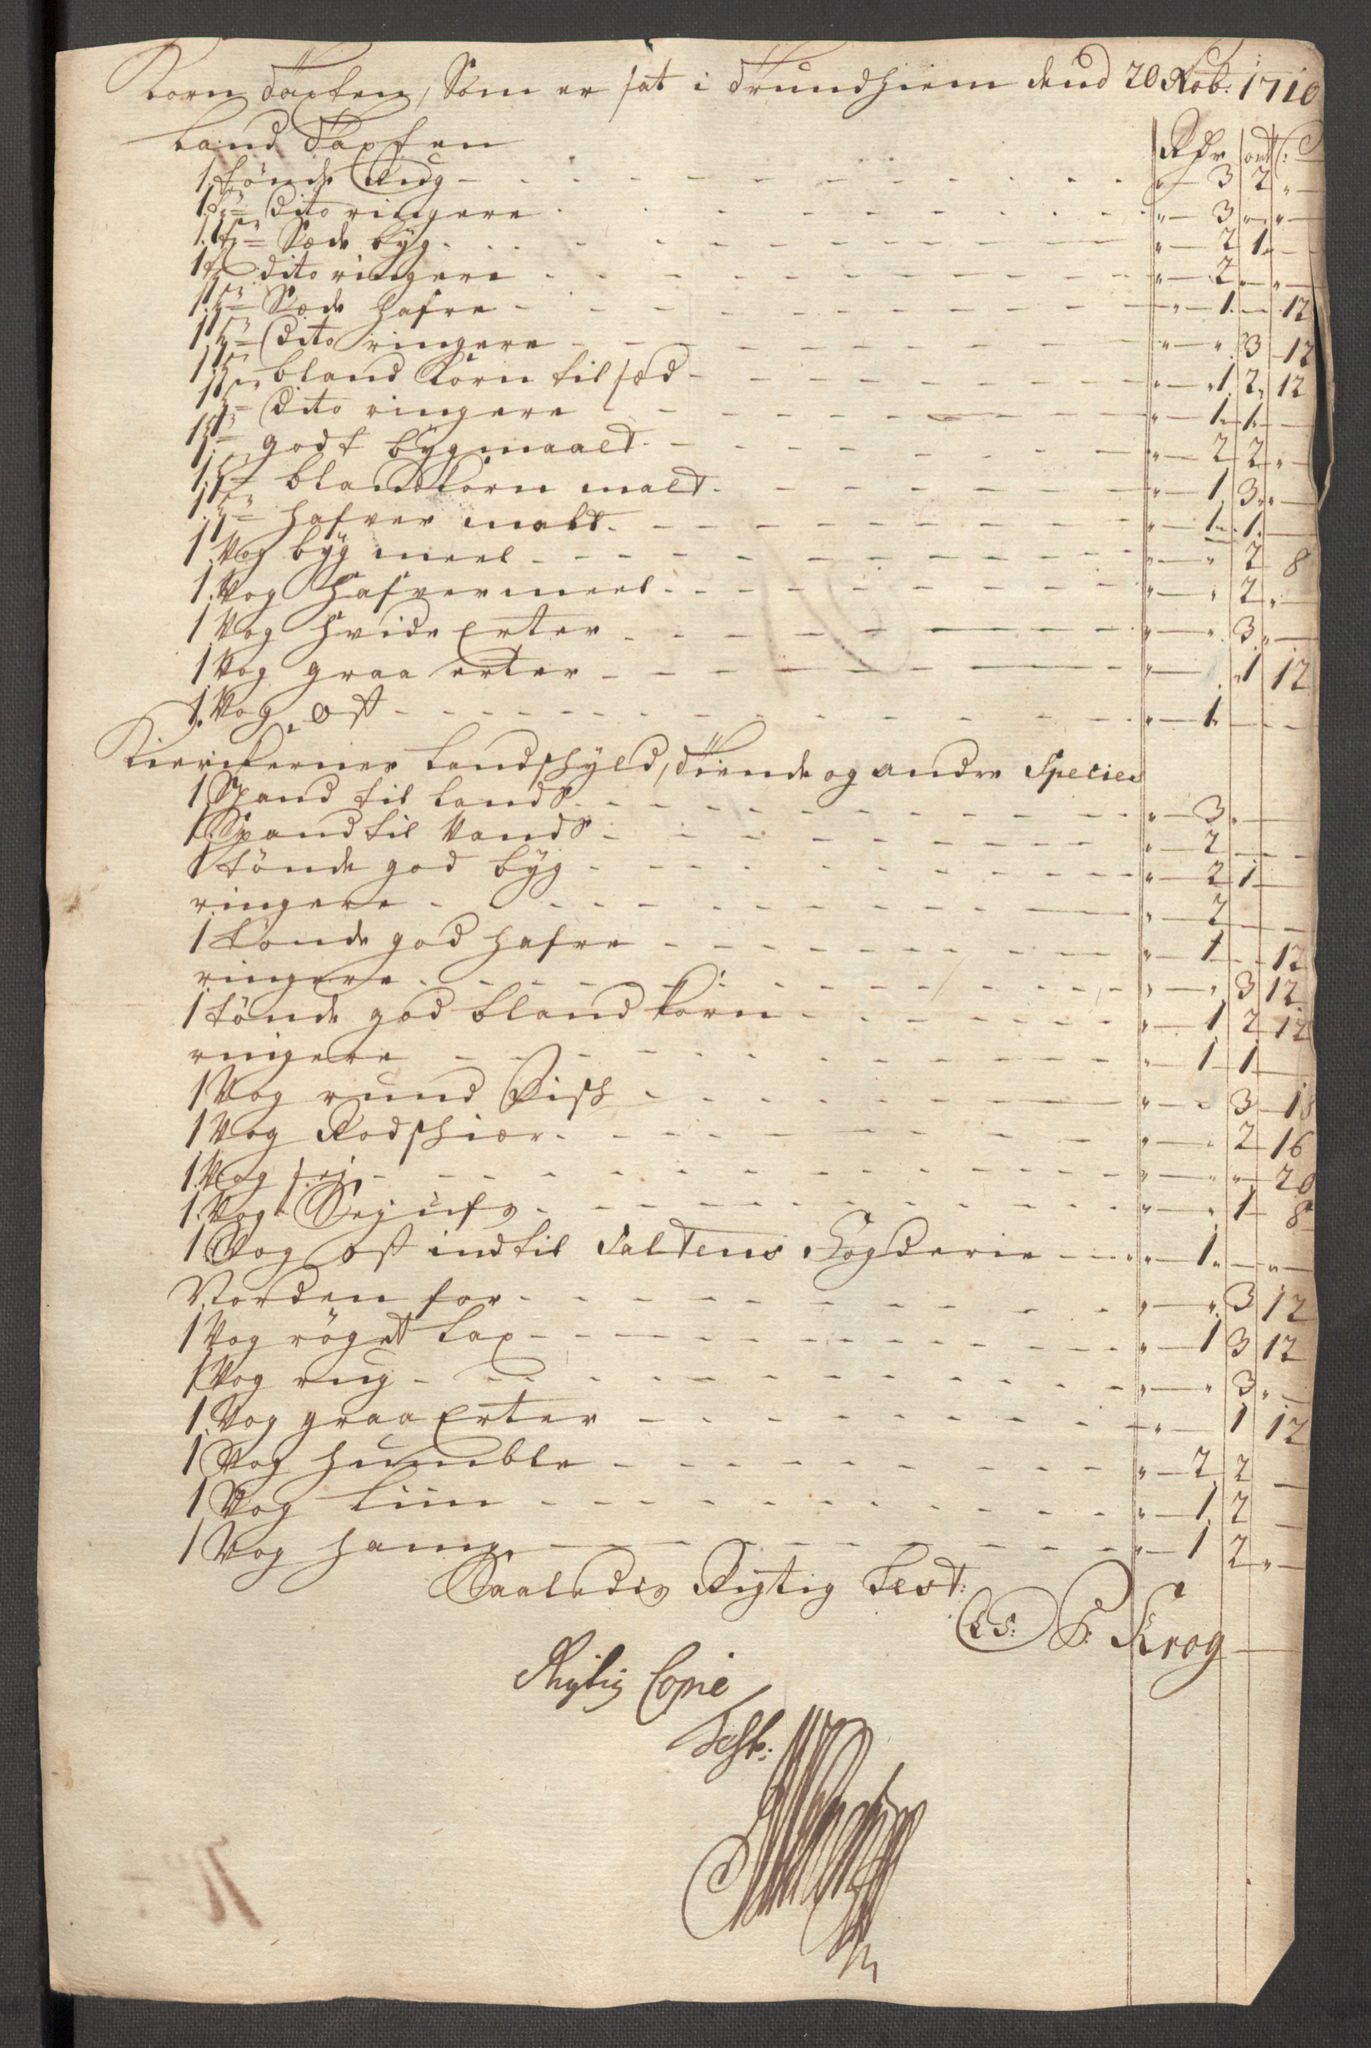 Korn Taxten, Som er sat i Trundhiem dend 20 Nob: 1710
Land Taxten Rdr ort ß
1 tønde Rug " 3 2 "
1 tø dito ringere " 3 " "
1 tø Sæde byg " 2 1
1 tø dito ringere " 2 " "
1 tø Sæde hafre " 1 12
1 tø dito ringere " " 3 12
1 tø bland Korn til sæd " 1 2 12
1 tø dito ringere " 1 1
1 tø godt bygmaalt " 2 2 "
1 tø blandkorn malt " 1 3 "
1 tø hafver malt " 1 1
1 Vog byg meel " " 2 8
1 Vog hafvermeel " " 2 "
1 Vog hvide Erter " " 3 "
1 Vog graa erter " 1 12
1 Vog ost " 1
Kierckernes Landschyld, Tiende og andre Species
1 Spand til Lands " 3 "
1 Spand til Vands " 2
1 tønde god byg " 2 1
ringere " 2
1 tønde god hafre " 1 12
ringere " " 3 12
1 tønde god bland korn " 1 2 12
ringere " 1 1
1 Vog rund Fisch " " 3 18
1 Vog Rodschiær " " 2 16
1 Vog sej " " " 20
1 Vog Sejufs " " 1 8
1 Vog ost indtil Saltens Fogderie " 1 " "
Norden for " " 3 12
1 Vog røget Lax " 1 3 12
1 Vog rug " " 3 "
1 Vog graa Erter " 1 12
1 Vog humble " 2 2
1 Vog Liin " 1 2
1 Vog hamp " 1 2 "
Saaledis Rigtig Test:
LS: P: Krog
Rigtig Copie
Test: